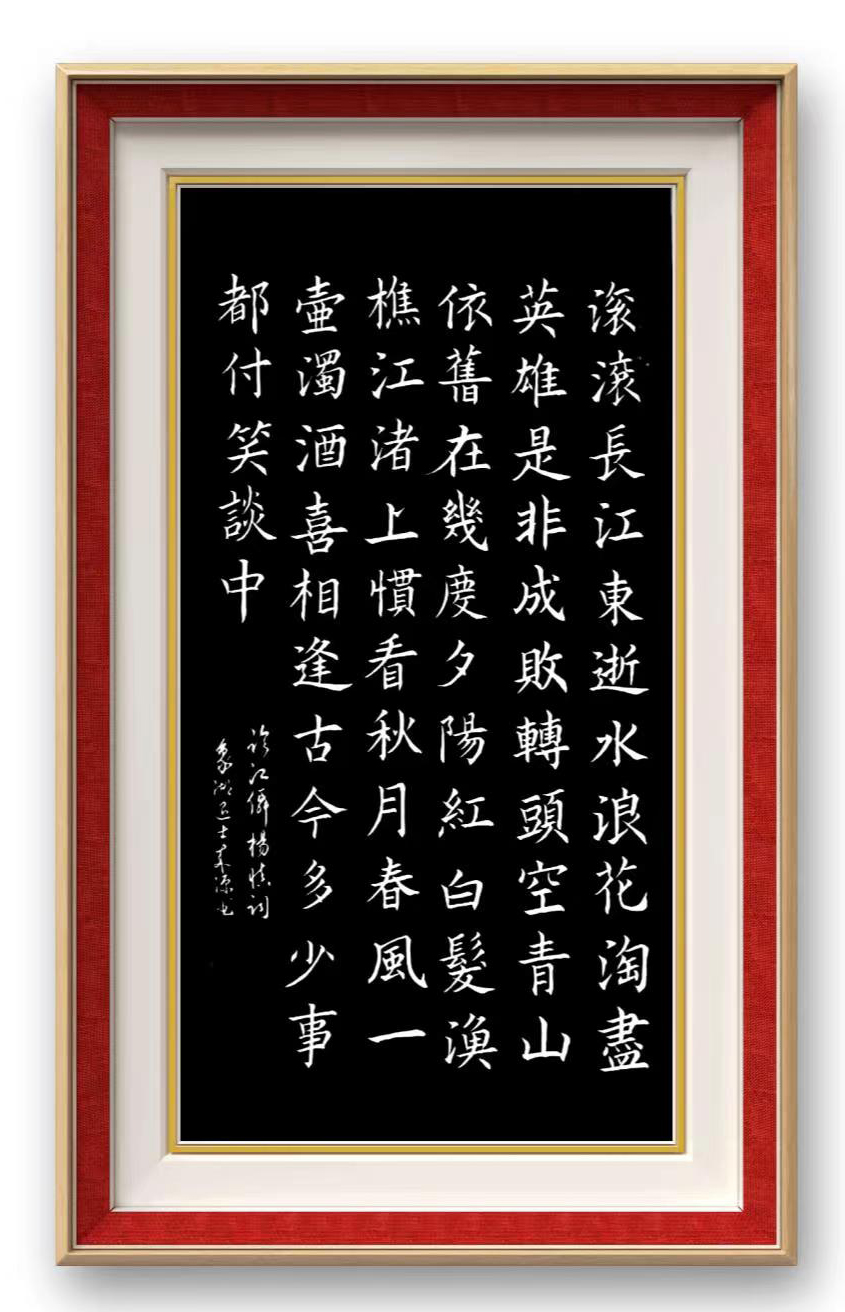 滚滚長江東逝水浪花淘盡
英雄是非成敗轉頭空青山
依舊在幾度夕陽紅白髮漁
樵江渚上慣看秋月春風一
壺濁酒喜相逢古今多少事
都付笑談中
臨江僊楊慎詞
象湖士源书